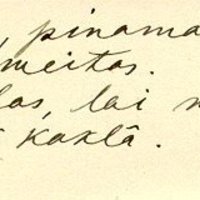 , pinama
meitas.
las, lai n
kaklā.